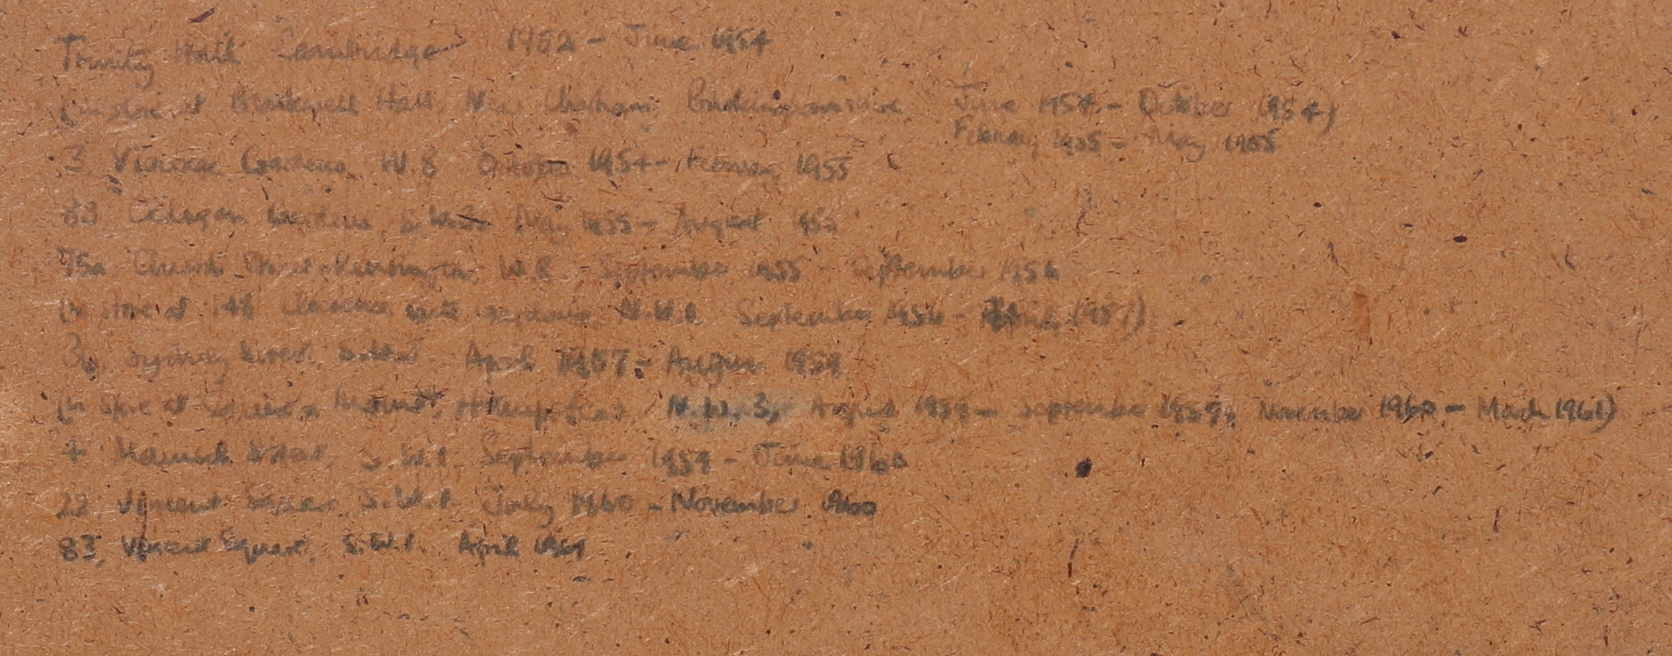 Trinity Hall Cambridge 1952 - June 1954
(in store at Hall, Near Chesham Buckinghamshire June 1954 - October 1954)
February 1955 - May 1955
3, Gardens, W.8 October 1954 - February 1955
Cadogan Gardens, S.W.3 May 1955 - August 1955
75a Church Street Kensington, W.8 - September 1955 - September 1956
(in store at Clarence Gate Gardens, N.W.1 September 1956 - April 1957)
Sydney Street, April 1957 - August 1959
(in store at Mount, Hampstead, N.W.3, August 1959 - September 1959, November 1960 - March 1961)
Street, S.W.1. September 1959 - June 1960
22, Vincent Square, S.W.1. July 1960 - November 1960
83, Vincent Square, S.W.1. April 1961